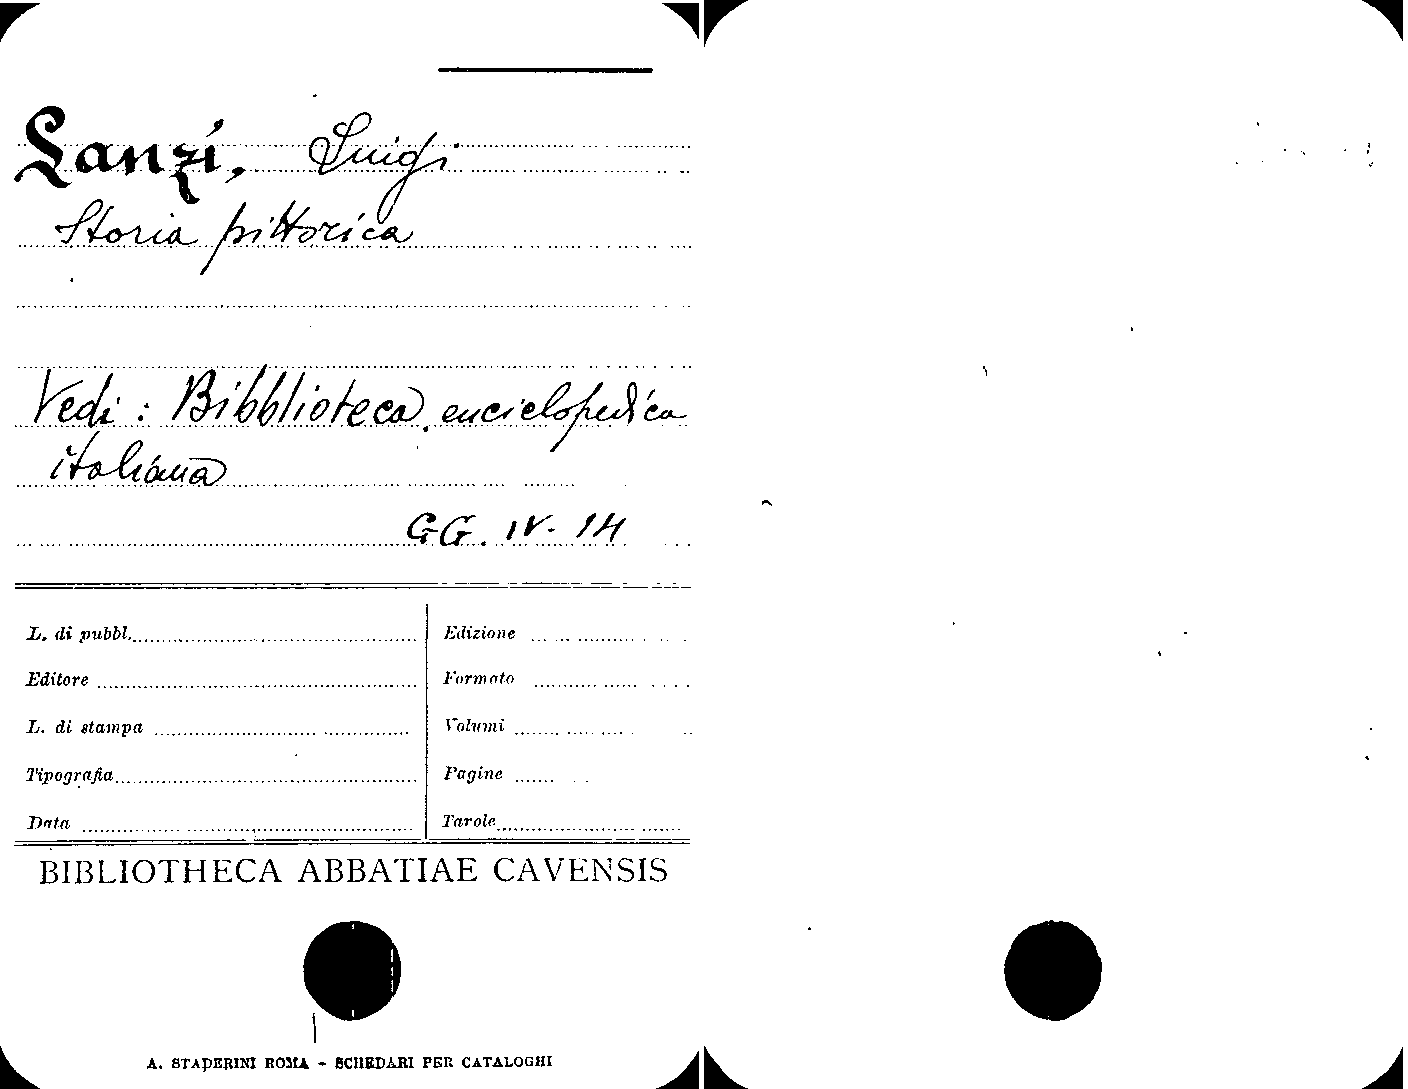 Lanzi, Luigi
Storia pittorica
Vedi: Bibblioteca enciclopedica
italiana
GG. IV. 14
L. di pubbl. Edizione
Editore Formato
L. di stampa Volumi
Tipografia Pagine
Data Tavole
BIBLIOTHECA ABBATIAE CAVENSIS
A. STADERINI ROMA - SCHEDARI PER CATALOGHI